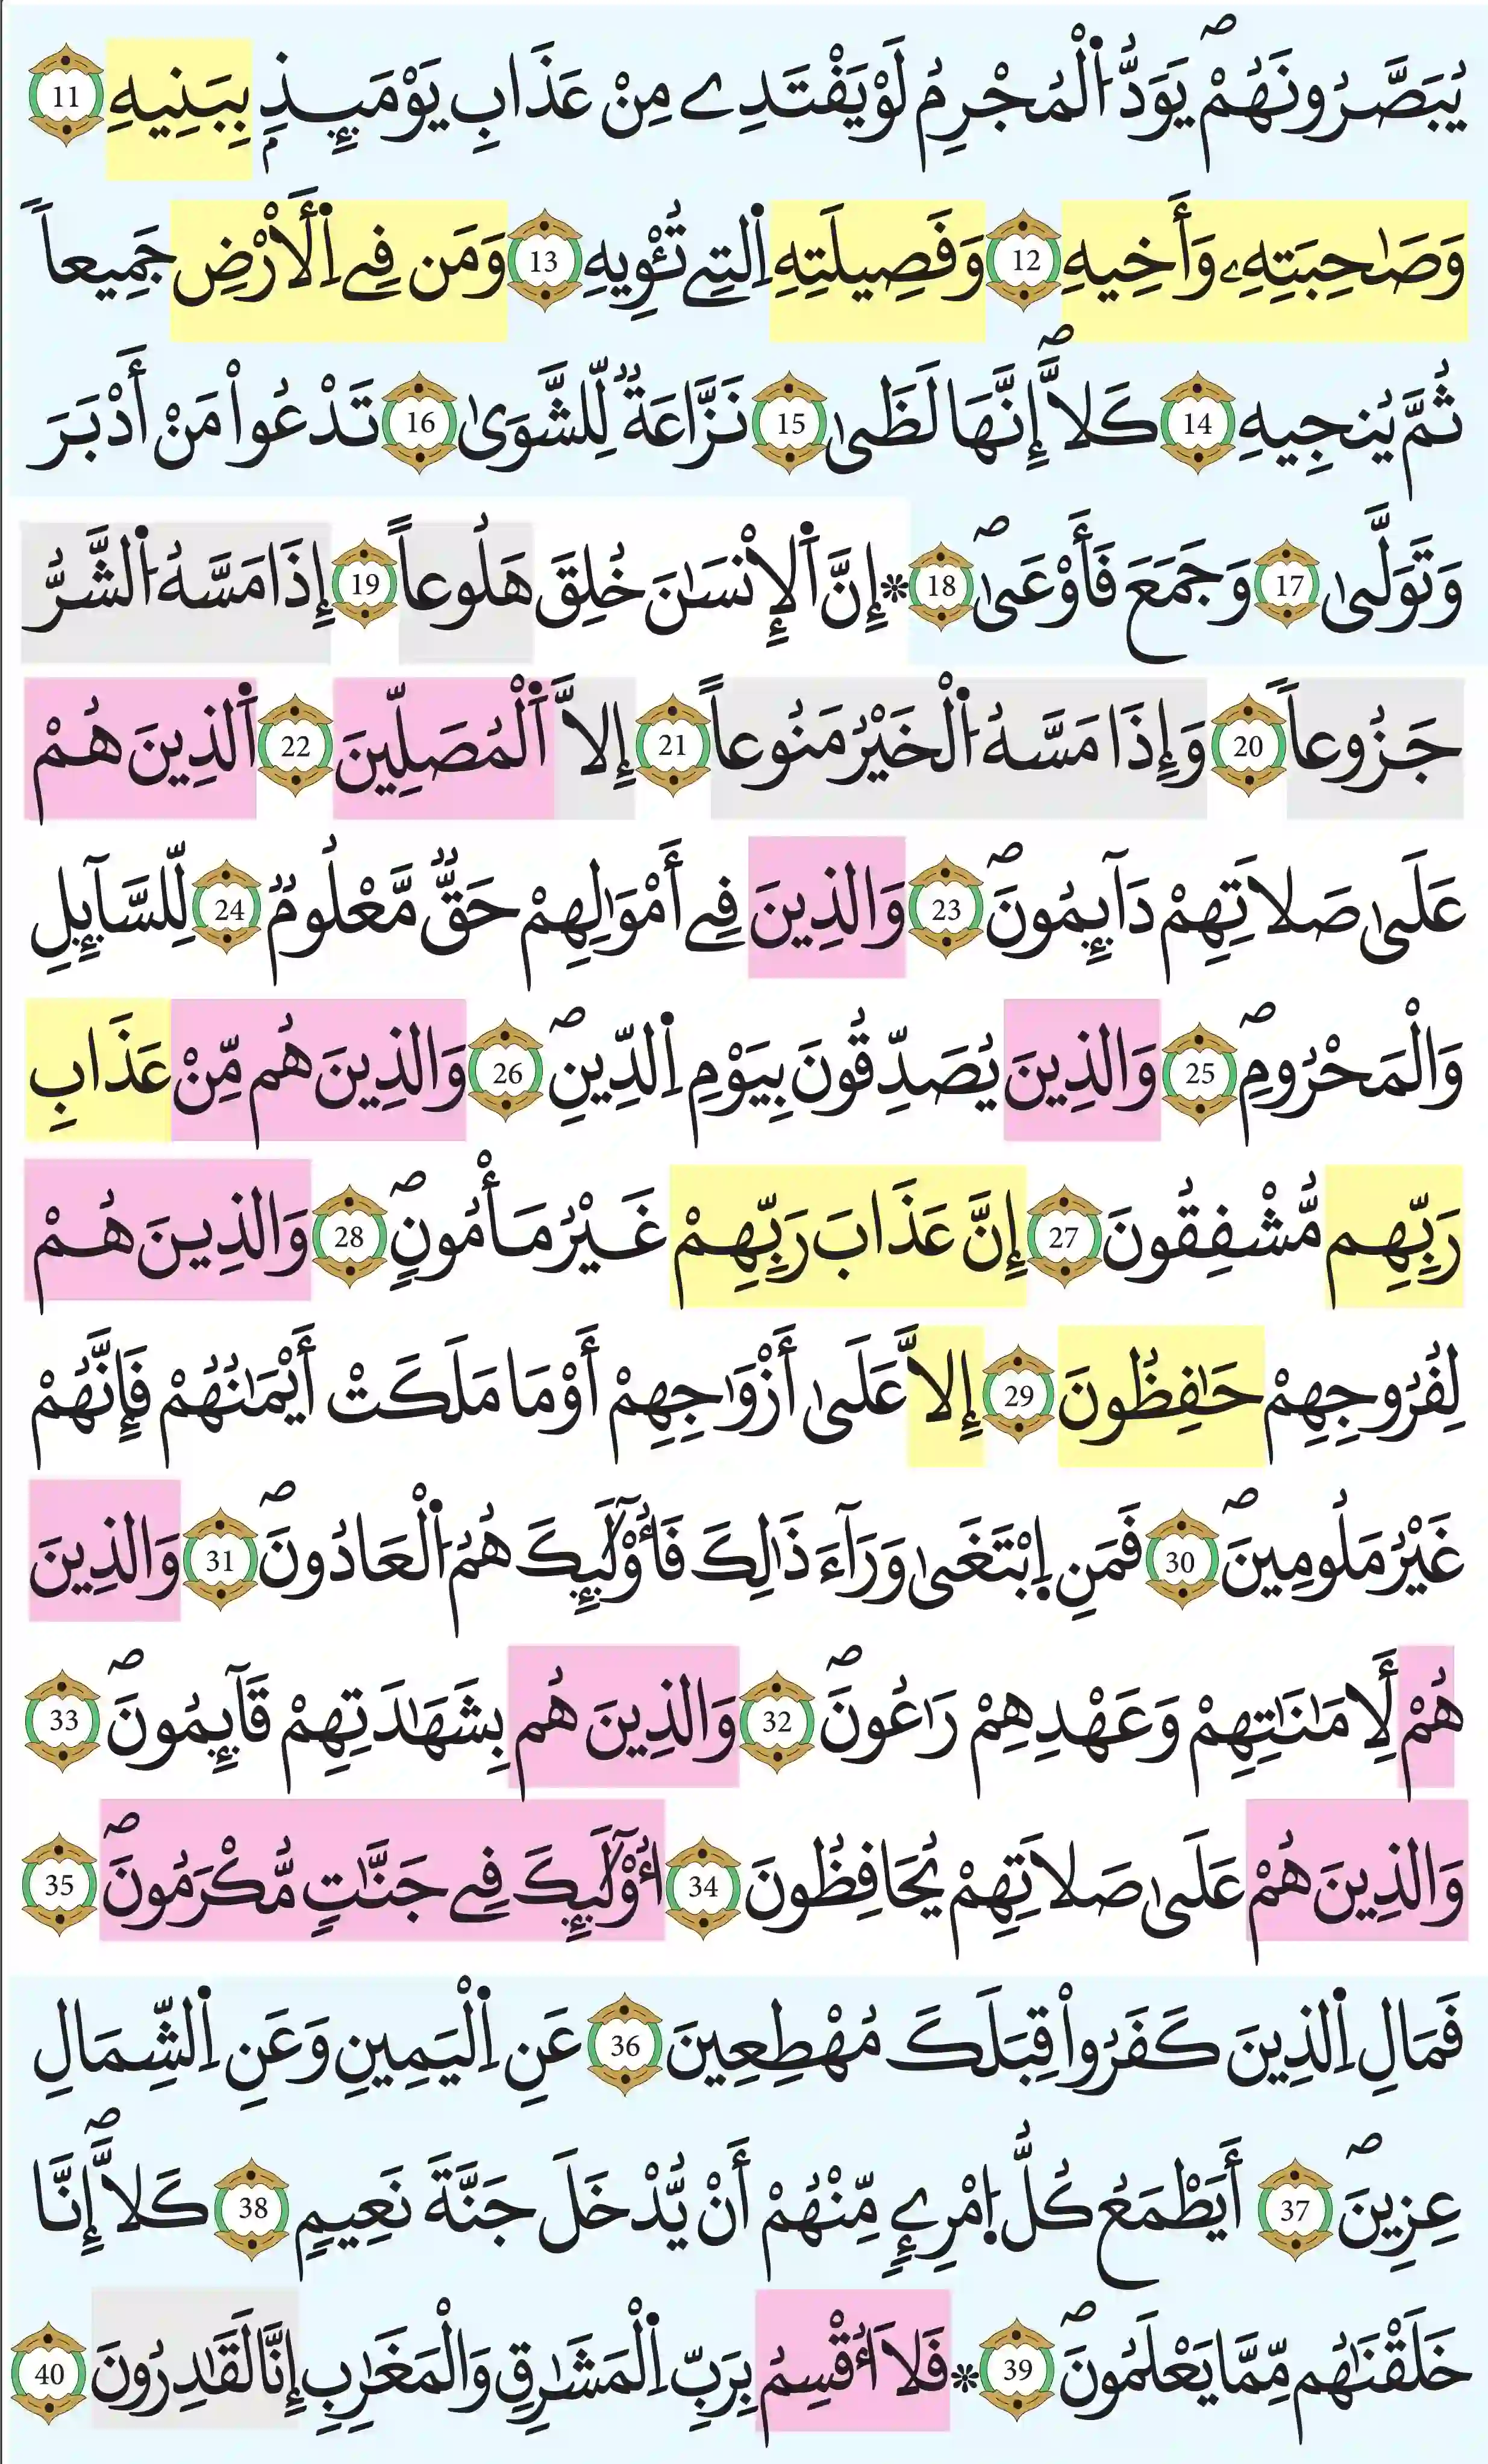 يُبَصَّرُونَهُمْۖ يَوَدُّ اُ۬لْمُجْرِمُ لَوْ يَفْتَدِے مِنْ عَذَابِ يَوْمَئِذِۢ بِبَنِيهِ 11
وَصَٰحِبَتِهِۦ وَأَخِيهِ 12 وَفَصِيلَتِهِ اِ۬لتِے تُـْٔوِيهِ 13 وَمَن فِے اِ۬لَارْضِ جَمِيعاٗ
ثُمَّ يُنجِيهِ 14 كَلَّاۖ إِنَّهَا لَظَىٰ 15 نَزَّاعَةٞ لِّلشَّوَىٰ 16 تَدْعُواْ مَنْ أَدْبَرَ
وَتَوَلَّىٰ 17 وَجَمَعَ فَأَوْعَىٰۖ 18 ۞إِنَّ اَ۬لْإِنْسَٰنَ خُلِقَ هَلُوعاً 19 إِذَا مَسَّهُ اُ۬لشَّرُّ
جَزُوعاٗ 20 وَإِذَا مَسَّهُ اُ۬لْخَيْرُ مَنُوعاً 21 إِلَّا اَ۬لْمُصَلِّينَ 22 اَ۬لذِينَ هُمْ
عَلَىٰ صَلَاتِهِمْ دَآئِمُونَۖ 23 وَالذِينَ فِے أَمْوَٰلِهِمْ حَقّٞ مَّعْلُومٞ 24 لِّلسَّآئِلِ
وَالْمَحْرُومِۖ 25 وَالذِينَ يُصَدِّقُونَ بِيَوْمِ اِ۬لدِّينِۖ 26 وَالذِينَ هُم مِّنْ عَذَابِ
رَبِّهِم مُّشْفِقُونَ 27 إِنَّ عَذَابَ رَبِّهِمْ غَيْرُ مَأْمُونٖۖ 28 وَالذِينَ هُمْ
لِفُرُوجِهِمْ حَٰفِظُونَ 29 إِلَّا عَلَىٰ أَزْوَٰجِهِمْ أَوْ مَا مَلَكَتْ أَيْمَٰنُهُمْ فَإِنَّهُمْ
غَيْرُ مَلُومِينَۖ 30 فَمَنِ اِ۪بْتَغَىٰ وَرَآءَ ذَٰلِكَ فَأُوْلَٰٓئِكَ هُمُ اُ۬لْعَادُونَۖ 31 وَالذِينَ
هُمْ لِأَمَٰنَٰتِهِمْ وَعَهْدِهِمْ رَٰعُونَۖ 32 وَالذِينَ هُم بِشَهَٰدَتِهِمْ قَآئِمُونَۖ 33
وَالذِينَ هُمْ عَلَىٰ صَلَاتِهِمْ يُحَافِظُونَ 34 أُوْلَٰٓئِكَ فِے جَنَّٰتٖ مُّكْرَمُونَۖ 35
فَمَالِ اِ۬لذِينَ كَفَرُواْ قِبَلَكَ مُهْطِعِينَ 36 عَنِ اِ۬لْيَمِينِ وَعَنِ اِ۬لشِّمَالِ
عِزِينَۖ 37 أَيَطْمَعُ كُلُّ اُ۪مْرِےٕٖ مِّنْهُمْ أَنْ يُّدْخَلَ جَنَّةَ نَعِيمٖ 38 كَلَّاۖ إِنَّا
خَلَقْنَٰهُم مِّمَّا يَعْلَمُونَۖ 39 ۞فَلَا أُقْسِمُ بِرَبِّ اِ۬لْمَشَٰرِقِ وَالْمَغَٰرِبِ إِنَّا لَقَٰدِرُونَ 40